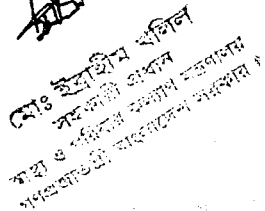 মোঃ ইব্রাহীম খলিল
সহকারী প্রধান
স্বাস্থ্য ও পরিবার কল্যাণ মন্ত্রণালয়
গণপ্রজাতন্ত্রী বাংলাদেশ সরকার ।